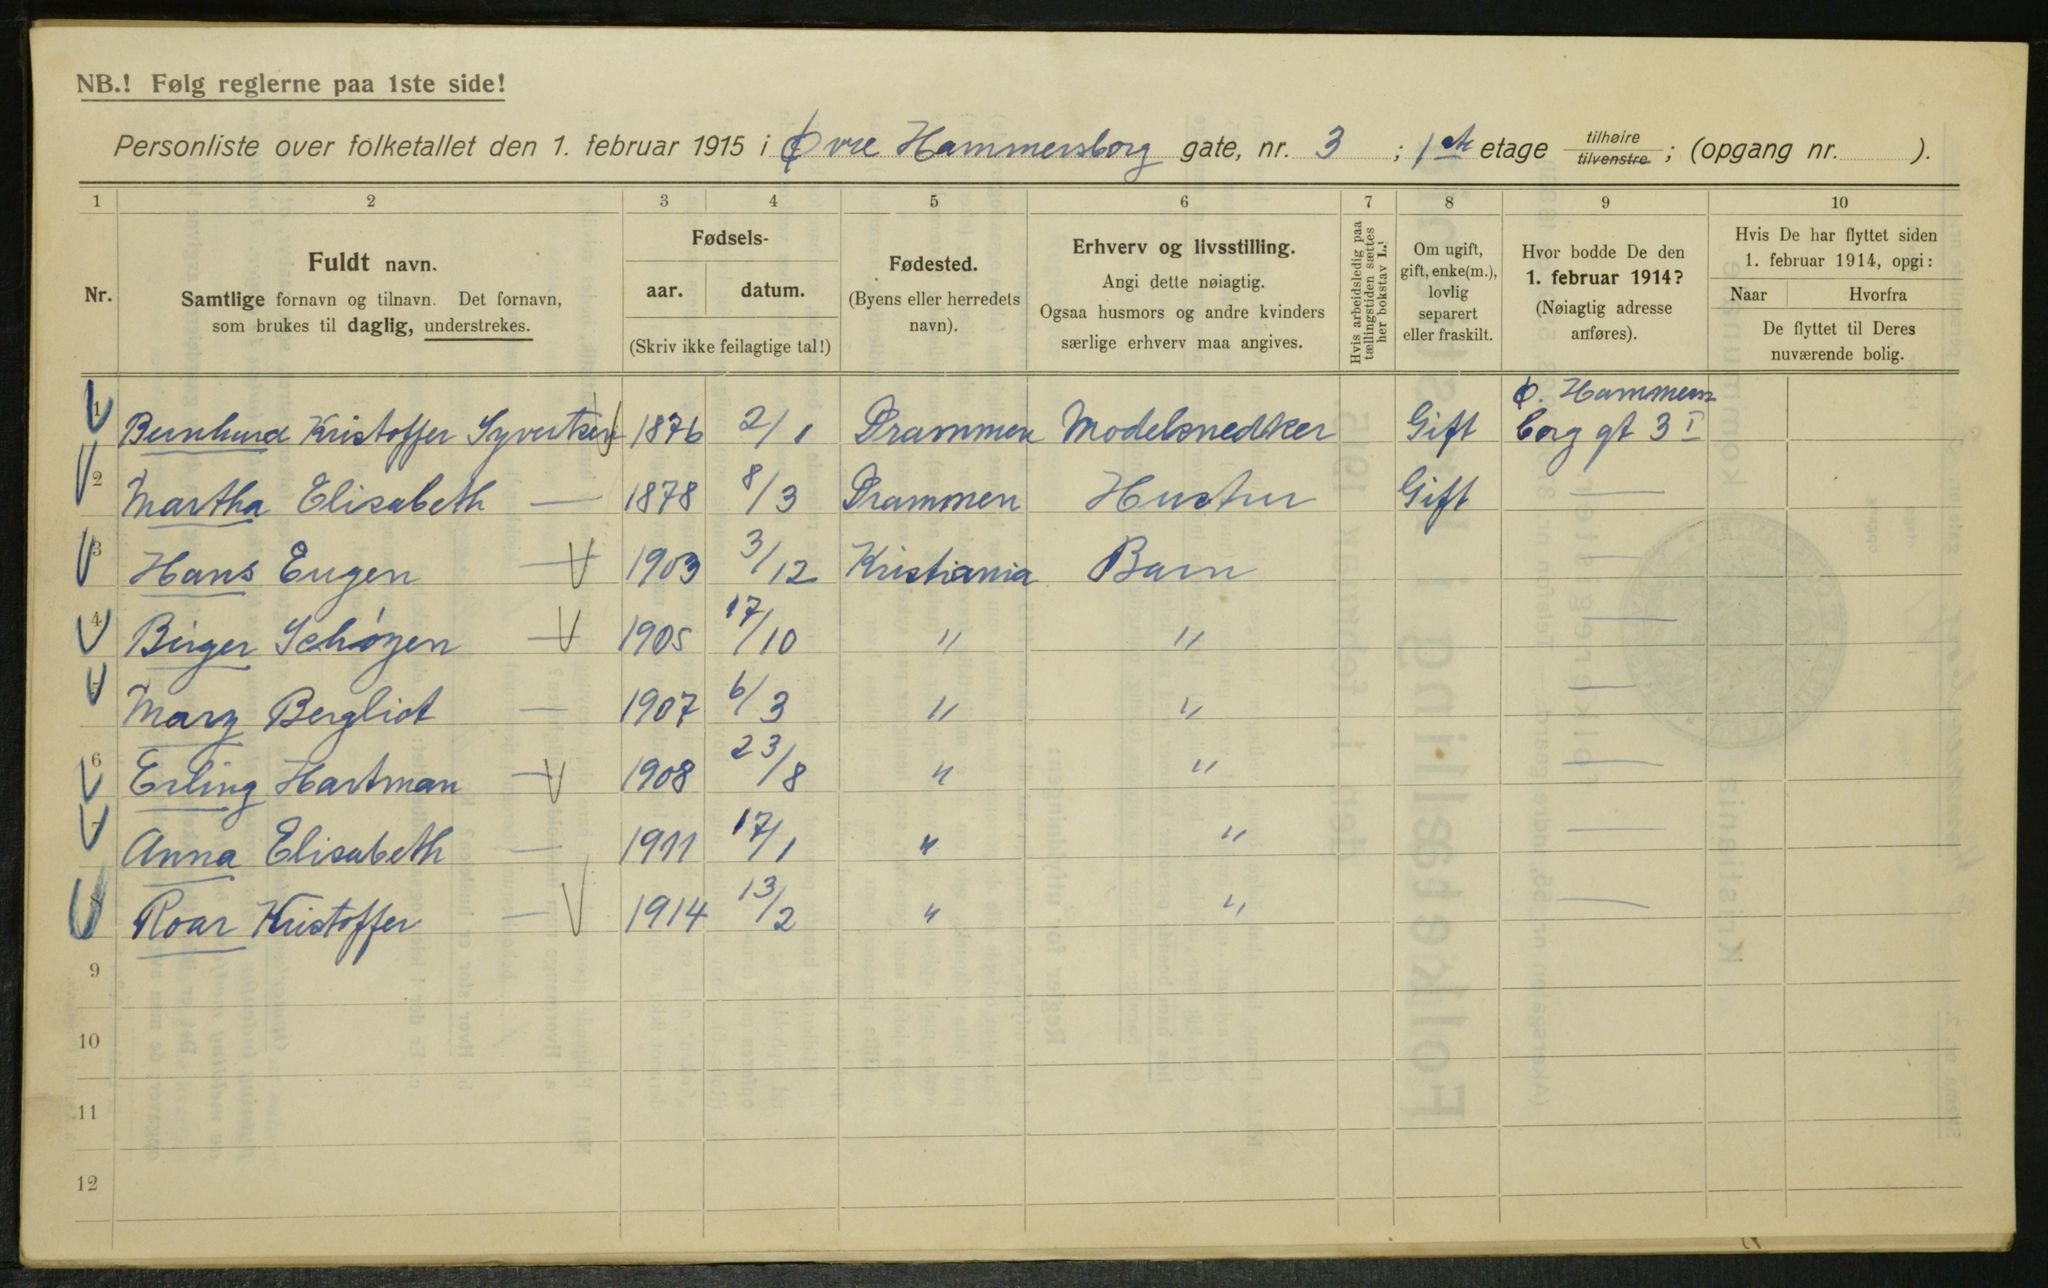 NB.! Følg reglerne paa 1ste side!
Personliste over folketallet den 1. februar 1915 i Øvre Hammersborg gate, nr. 3 ; 1ste etage tilhøire tilvenstre ; (opgang nr. ).
1 2 3 4 5 6 7 8 9 10
Nr.
Fuldt navn.
Samtlige fornavn og tilnavn. Det fornavn,
som brukes til daglig, understrekes.
Fødsels-
aar. datum.
(Skriv ikke feilagtige tal!)
Fødested.
(Byens eller herredets
navn).
Erhverv og livsstilling.
Angi dette nøiagtig.
Ogsaa husmors og andre kvinders
særlige erhverv maa angives.
Hvis arbeidsledig paa
tællingstiden sættes
her bokstav L.!
Om ugift,
gift, enke(m.),
lovlig
separert
eller fraskilt.
Hvor bodde De den
1. februar 1914?
(Nøiagtig adresse
anføres).
Hvis De har flyttet siden
1. februar 1914, opgi:
Naar Hvorfra
De flyttet til Deres
nuværende bolig.
Ø. Hammers
1 Bernhard Kristoffer Syvertsen 1876 2/1 Drammen Modelsnedker Gift borg gt 3 I
2 Martha Elisabeth — 1878 8/3 Drammen Hustru Gift —
3 Hans Eugen — 1903 3/12 Kristiania Barn —
4 Birger Schøyen — 1905 17/10 " " —
Mary Bergliot — 1907 6/3 " " —
6 Erling Hartman — 1908 23/8 " " —
7 Anna Elisabeth — 1911 17/1 " " —
8 Roar Kristoffer — 1914 13/2 " " —
9
10
11
12